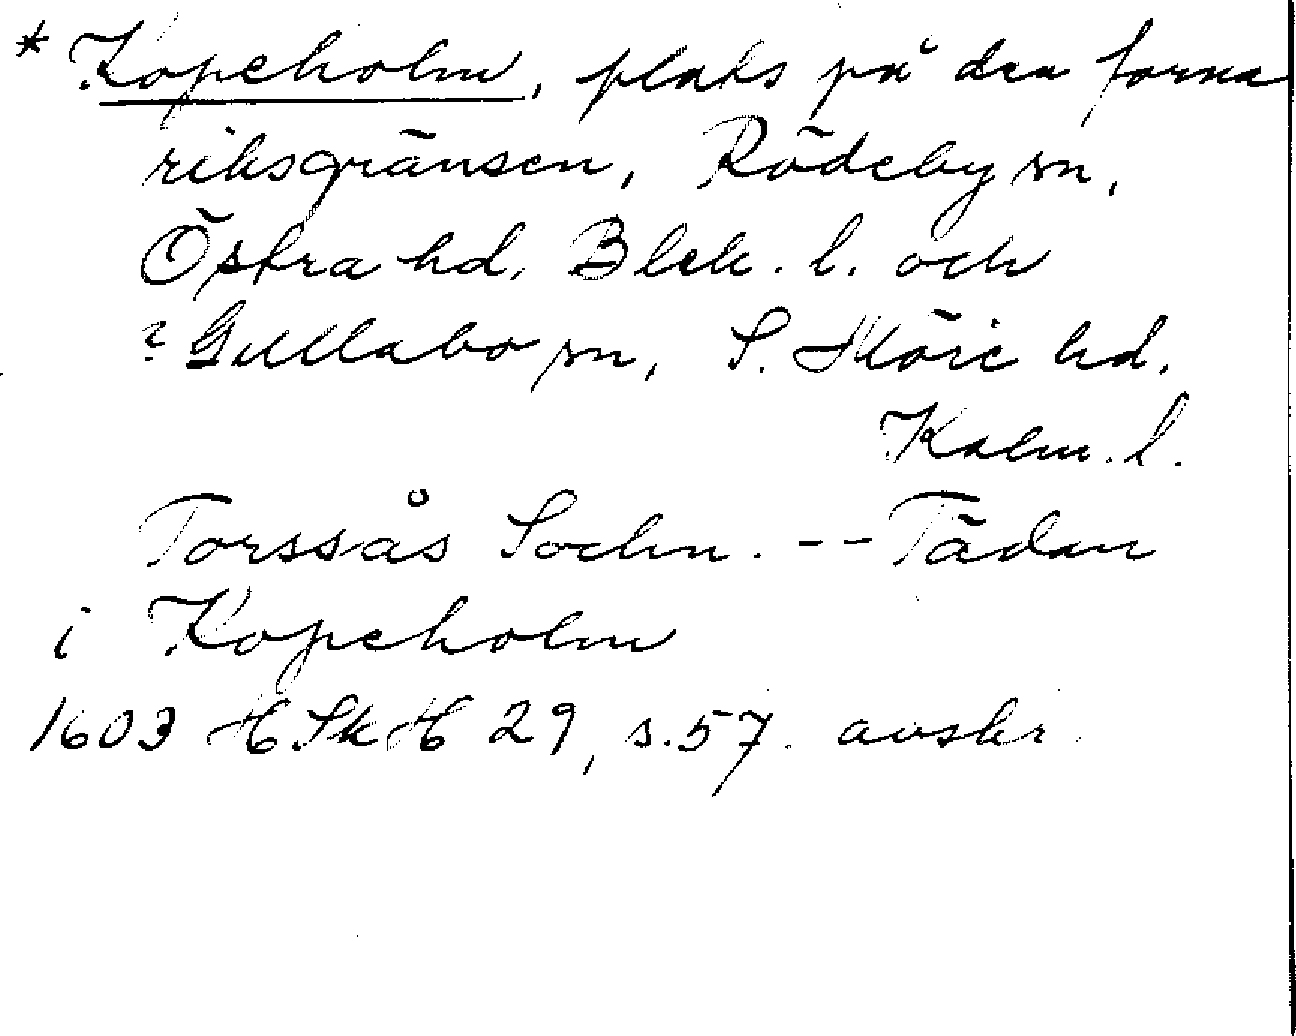 * Kopeholm, plats på den forna
riksgränsen, Rödeby sn,
Östra hd, Blek. l. och
? Gullabo sn, S. Möre hd,
Kalm. l.
Torssås Sochn. -- Tädan
i Kopeholm
1603 HSkH 29, s. 57. avskr.